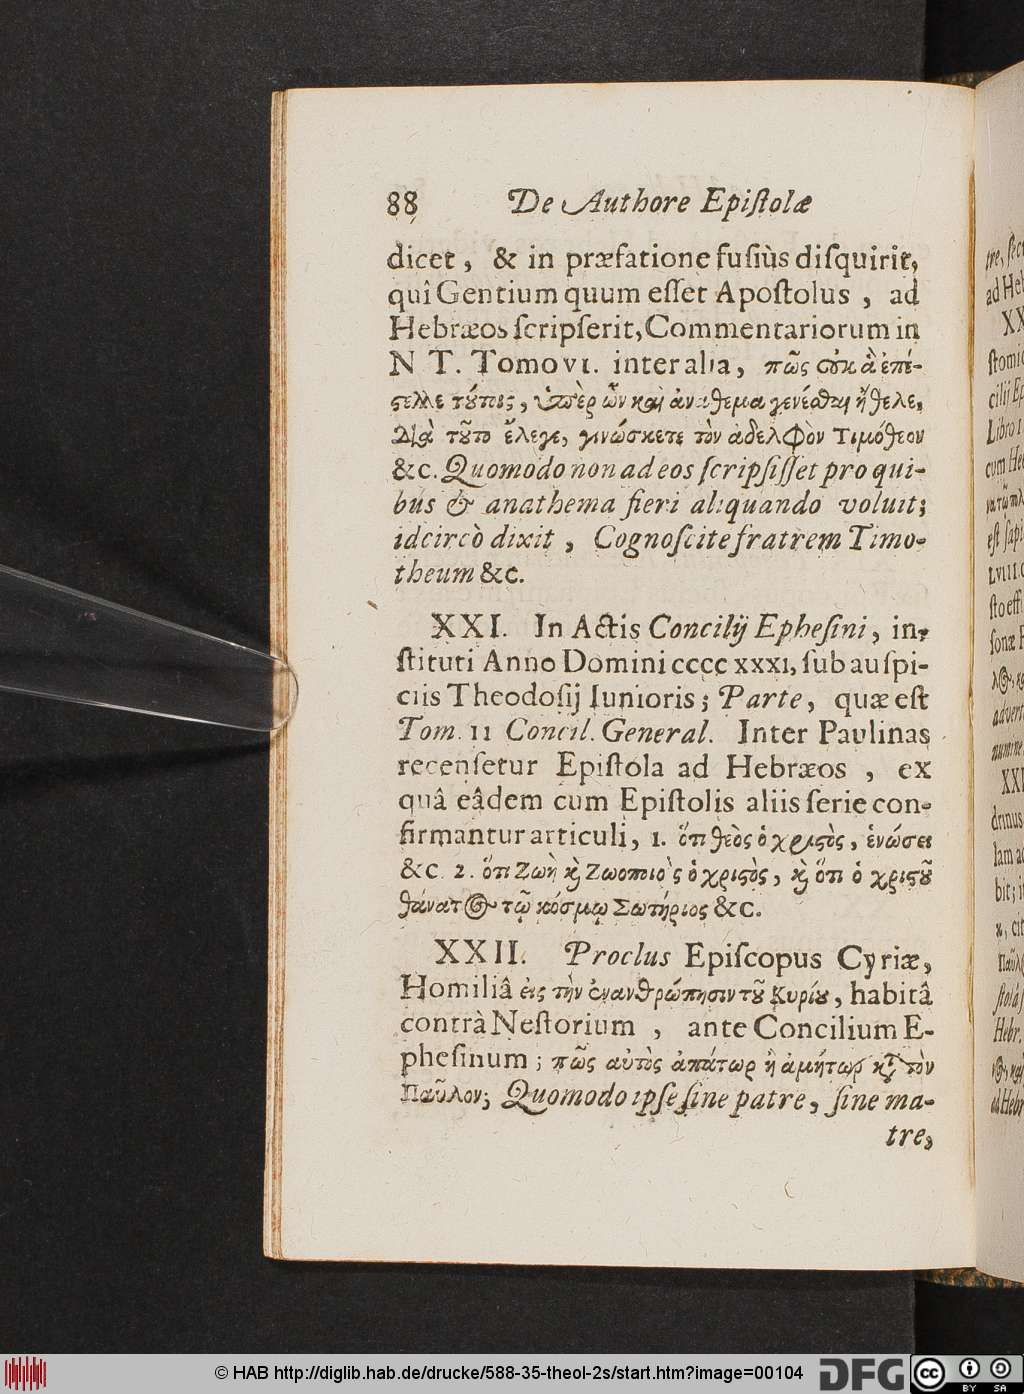 88 De Authore Epiſtolæ
dicet, & in præfatione fuſiùs diſquirit,
quî Gentium quum eſſet Apoſtolus, ad
Hebræos ſcripſerit, Commentariorum in
N T. Tomo VI. inter alia, πῶς οὐκ ἂ ἐπέ-
ςελλε τούτοις, ὑπὲρ ὧν καὶ ἀναθεμα γενέσθαι ἤθελε,
Διὰ τοῦτο ἔλεγε, γινώσκετε τὸν ἀδελφὸν Τιμόθεον
&c. Quomodo non ad eos ſcripſiſſet pro qui-
bus & anathema fieri aliquando voluit;
idcircò dixit, Cognoſcite fratrem Timo-
theum &c.
XXI. In Actis Concilij Epheſini, in-
ſtituti Anno Domini CCCC XXXI, ſub auſpi-
ciis Theodoſij Iunioris; Parte, quæ eſt
Tom. 11 Concil. General. Inter Paulinas
recenſetur Epiſtola ad Hebræos, ex
quâ eâdem cum Epiſtolis aliis ſerie con-
firmantur articuli, 1. ὅτι θεὸς ὁ χριςὸς, ἑνώσει
&c. 2. ὅτι Ζωὴ ϗ Ζωοποιὸς ὁ χριςὸς, ϗ ὅτι ὁ χριςοῦ
θάνατος τῷ κόσμῳ Σωτήριος &c.
XXII. Proclus Epiſcopus Cyriæ,
Homiliâ εἰς τὴν ἐνανθρώπησιν τοῦ Κυρίου, habitâ
contrà Neſtorium, ante Concilium E-
pheſinum; πῶς αὐτὸς ἀπάτωρ ἢ ἀμήτωρ κτ τὸν
Παῦλον; Quomodo ipſe ſine patre, ſine ma-
tre,
© HAB http://diglib.hab.de/drucke/588-35-theol-2s/start.htm?image=00104
DFG
cc
BY SA